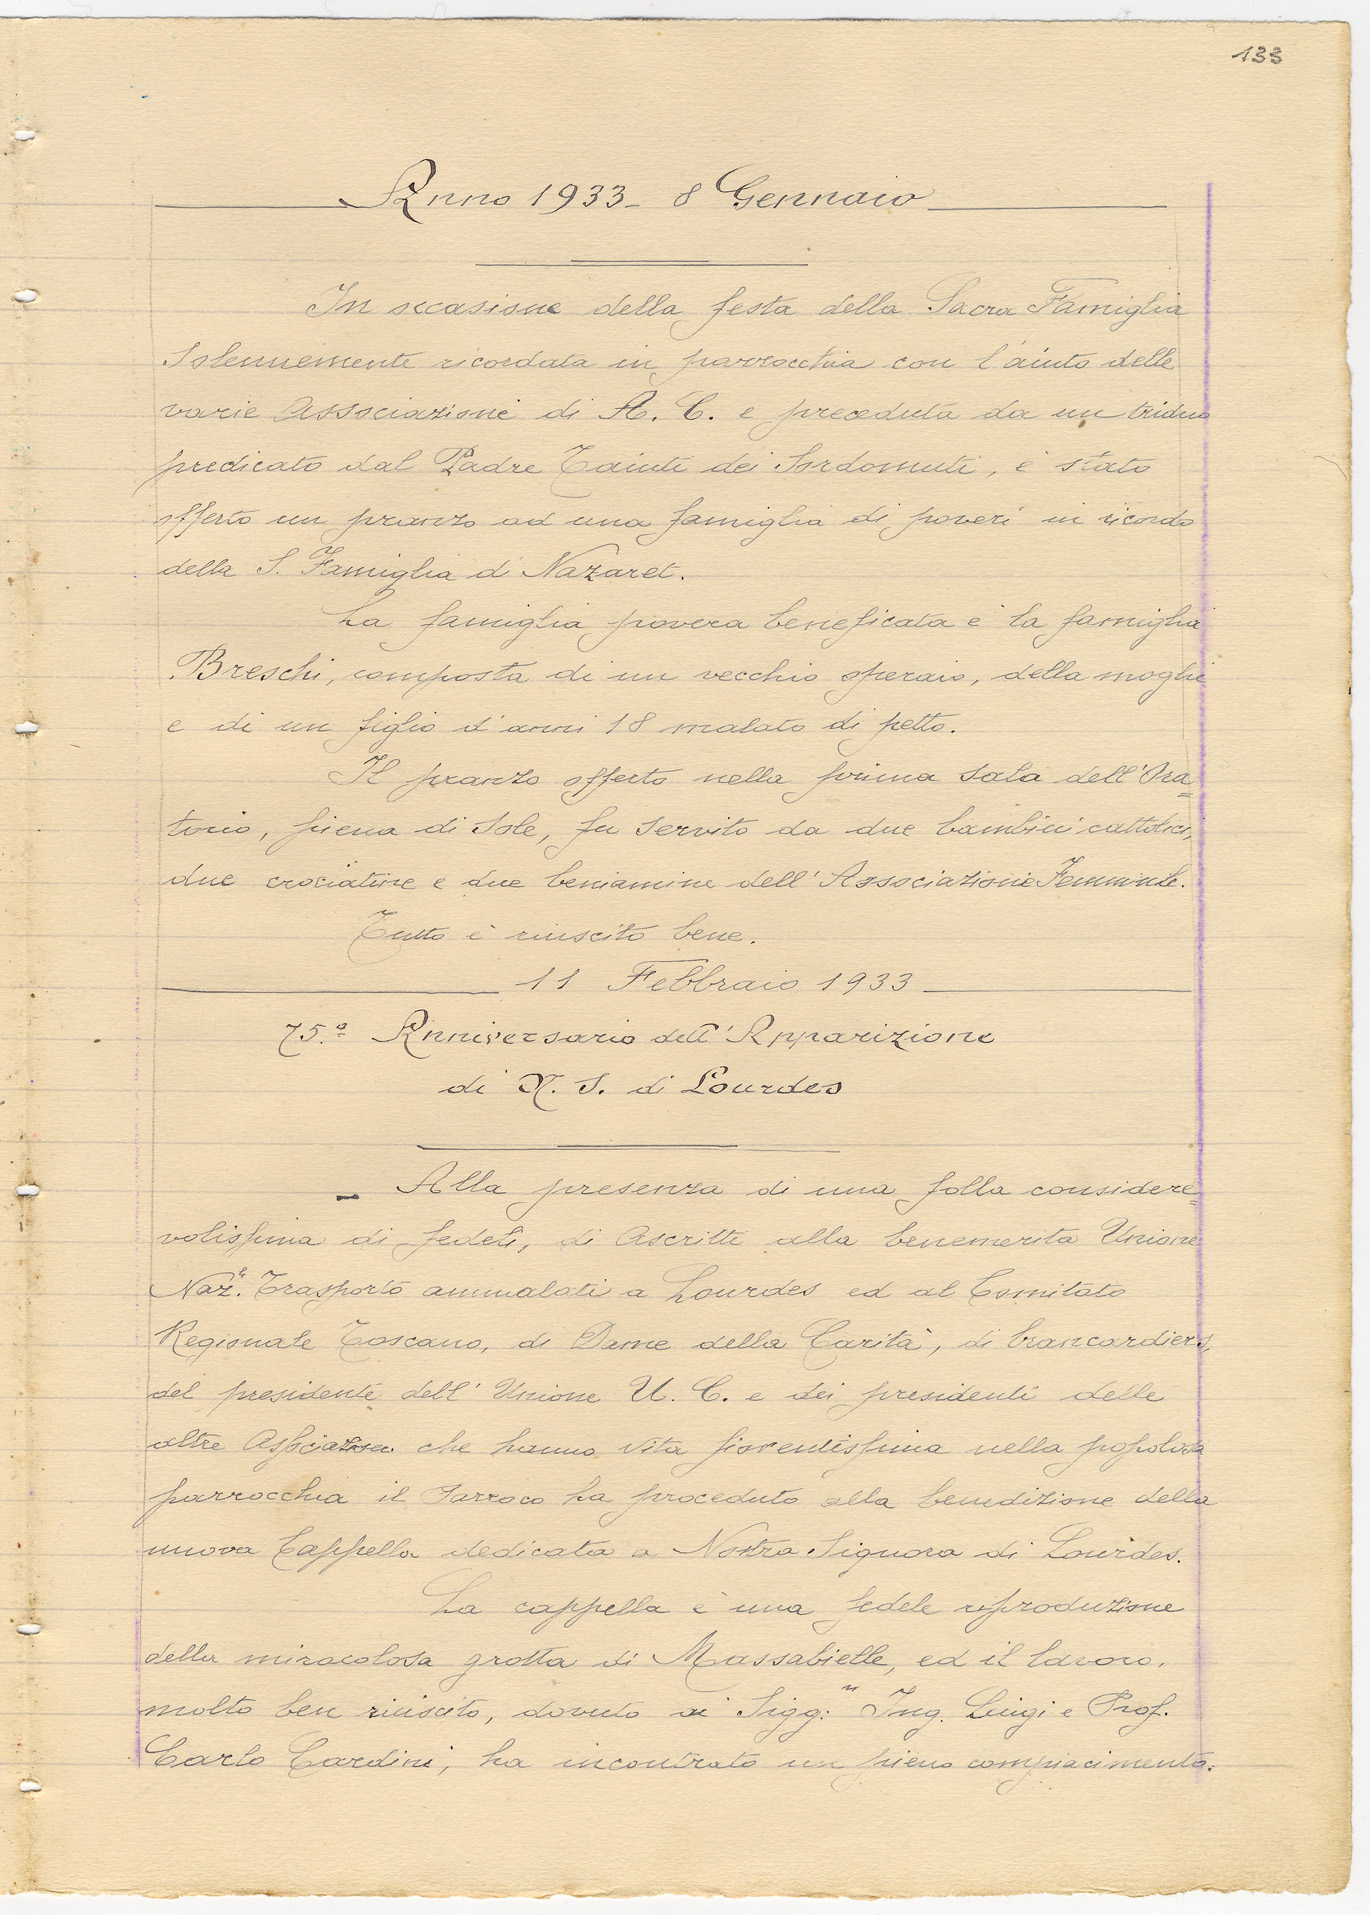 133
Anno 1933 - 8 Gennaio
In occasione della festa della Sacra Famiglia
solennemente ricordata in parrocchia con l'aiuto delle
varie Associazioni di A. C. e preceduta da un triduo
predicato dal Padre dei Sordomuti, è stato
offerto un pranzo ad una famiglia di poveri in ricordo
della S. Famiglia di Nazaret.
La famiglia povera beneficata è la famiglia
Breschi, composta di un vecchio operaio, della moglie
e di un figlio d'anni 18 malato di petto.
Il pranzo offerto nella prima sala dell'Ora=
torio, piena di sole, fu servito da due bambini cattolici,
due crociatine e due beniamine dell'Associazione Femminile.
Tutto è riuscito bene.
11 Febbraio 1933
75.º Anniversario dell'Apparizione
di N. S. di Lourdes
- Alla presenza di una folla considere=
volissima di fedeli, di Ascritti alla benemerita Unione
Naz.le Trasporto ammalati a Lourdes ed al Comitato
Regionale Toscano, di Dame della Carità, di brancardiers,
del presidente dell'Unione U. C. e dei presidenti delle
altre che hanno vita fiorentissima nella popolosa
parrocchia il Parroco ha proceduto alla benedizione della
nuova Cappella dedicata a Nostra Signora di Lourdes.
La cappella è una fedele riproduzione
della miracolosa grotta di Massabielle, ed il lavoro,
molto ben riuscito, dovuto ai Sigg.ri Ing. Luigi e Prof.
Carlo Cardini, ha incontrato un pieno compiacimento.